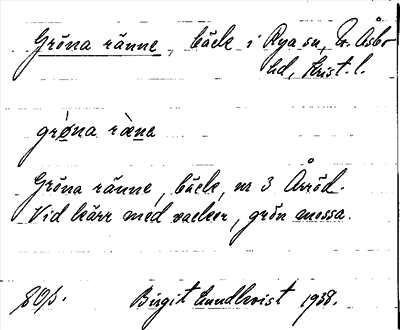 Gröna ränne, bäck i Rya sn, N. Åsbo
hd, Krist. l.
grøna ræne
Gröna ränne, bäck, nr 3 Årröd.
Vid kärr med vacker, grön mossa.
Birgit Lundkvist 1938.